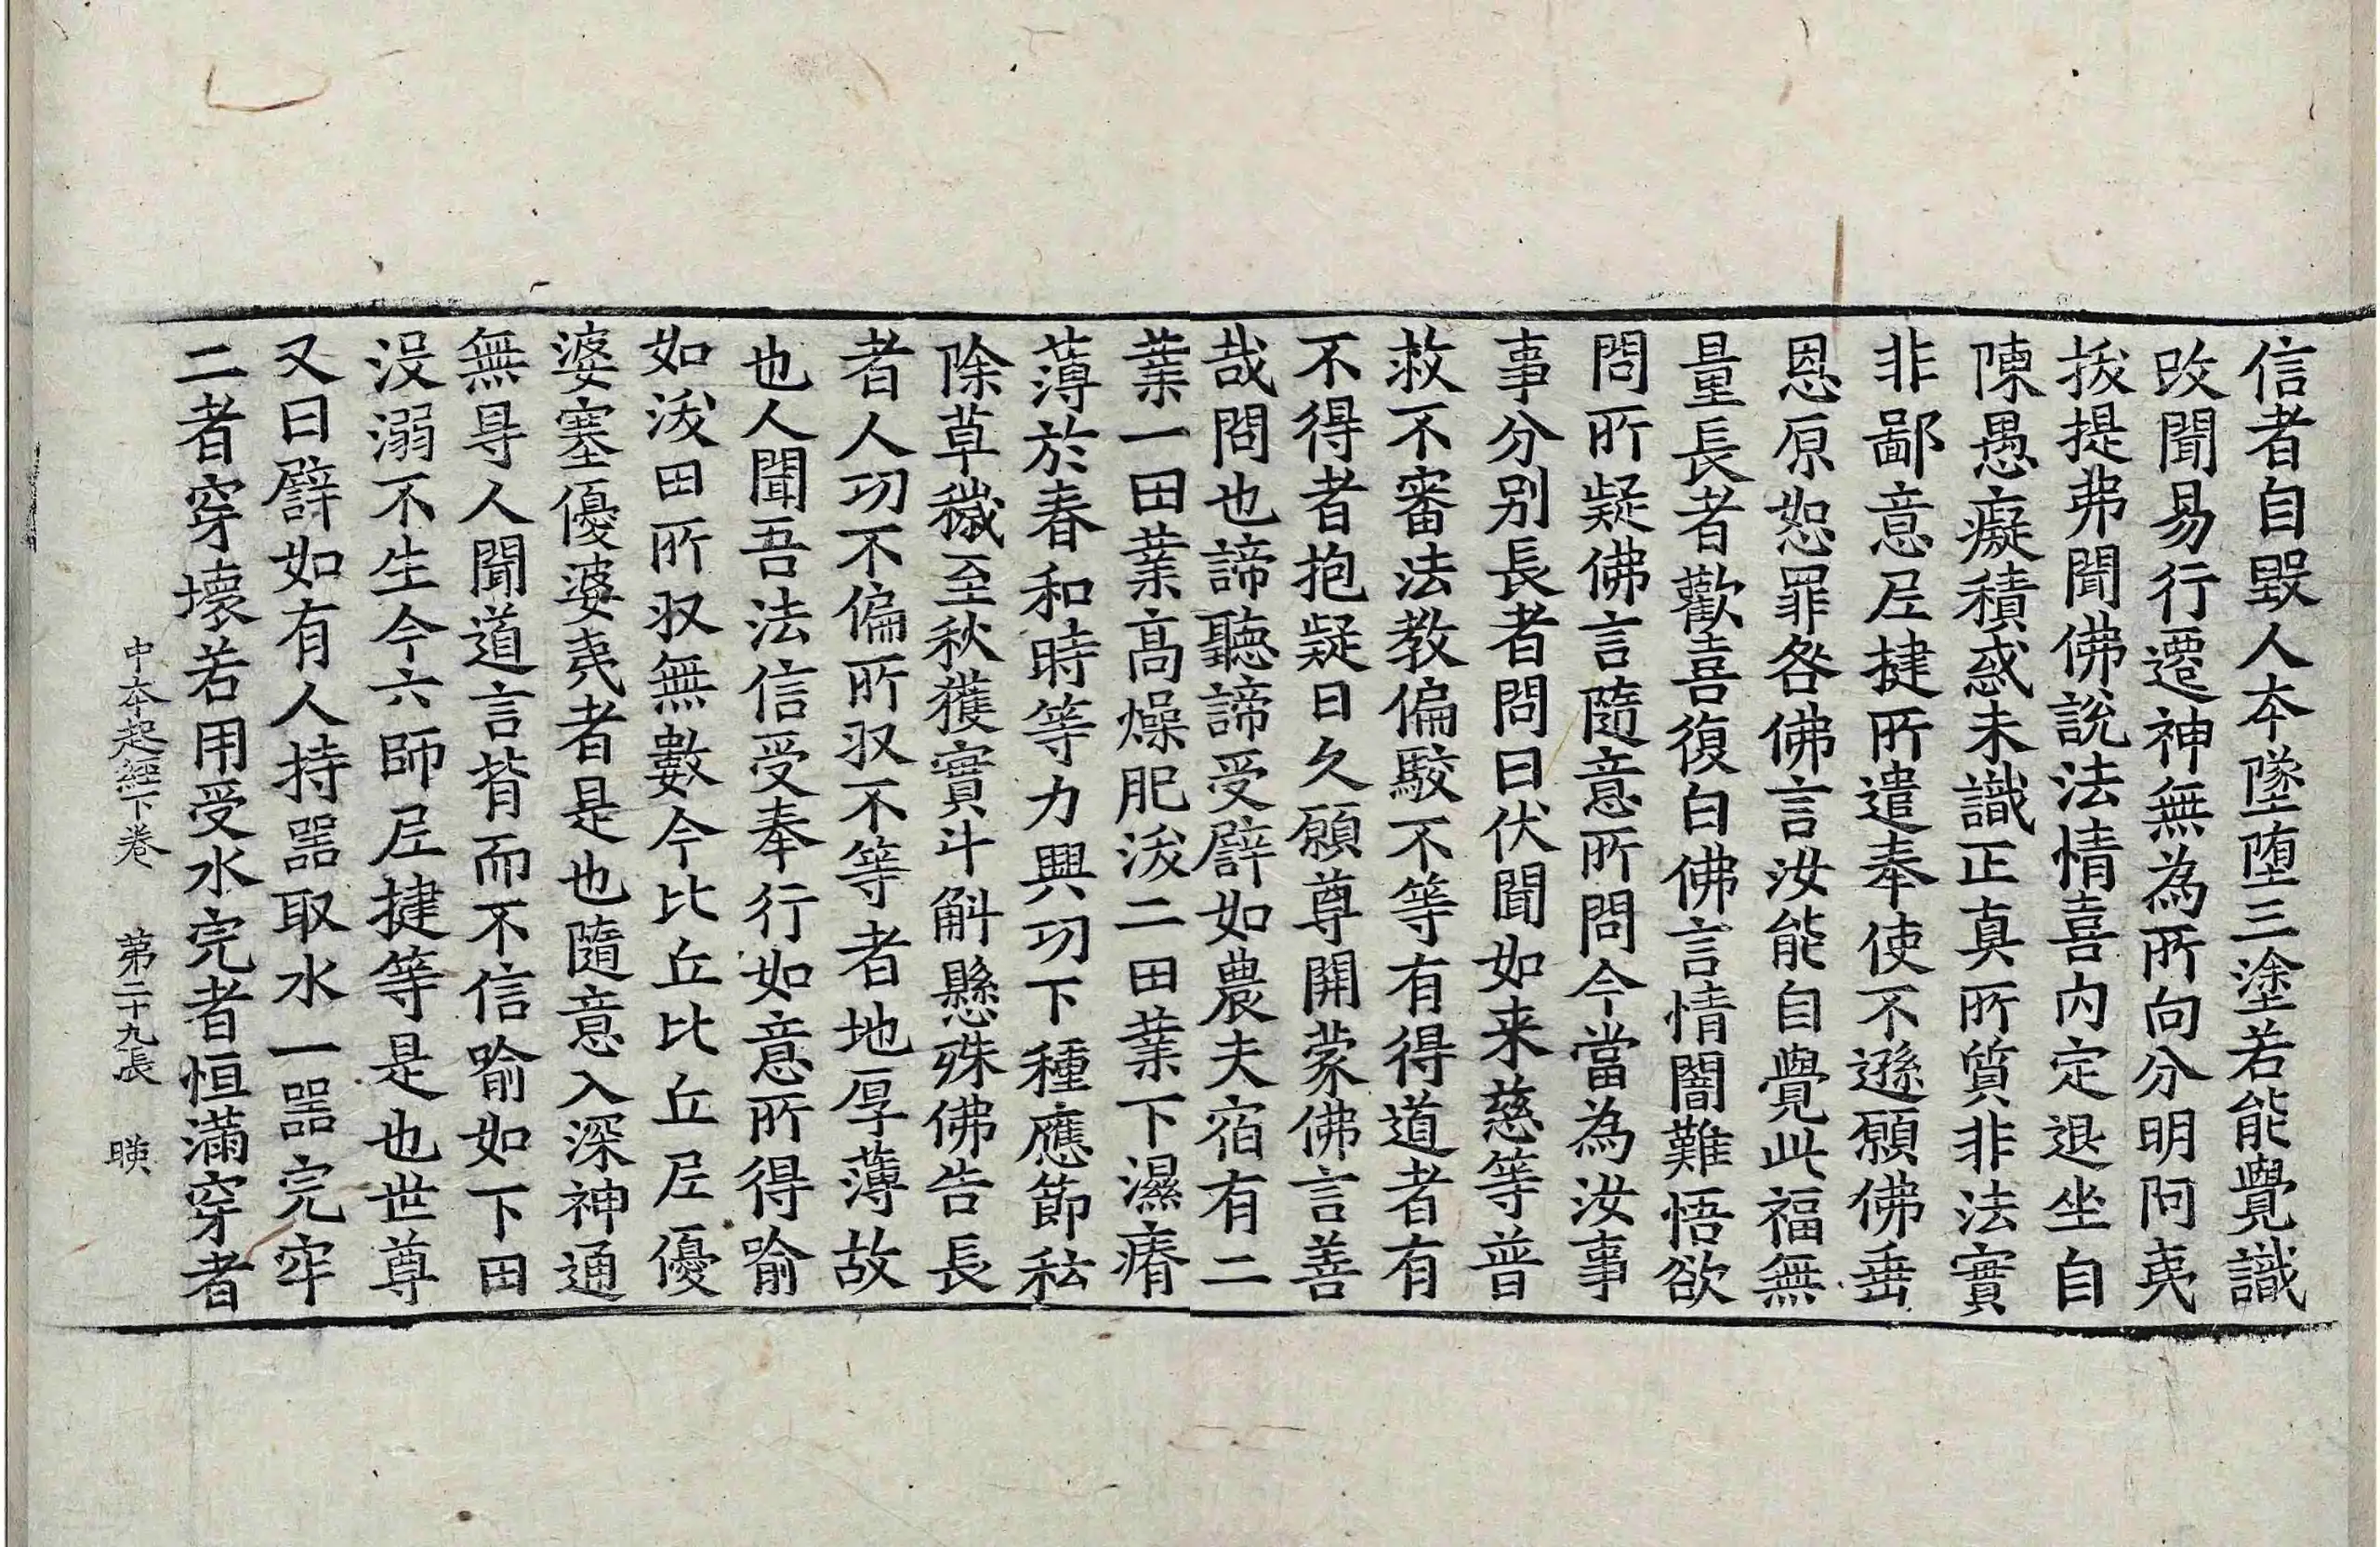 信者自毀人本墜堕三塗若能覺識
改聞易行遷神無為所向分明阿夷
拔提弗聞佛說法情喜內定退坐自
陳愚癡積惑未識正真所質非法實
非鄙意𡰱揵所遣奉使不遜願佛垂
恩原恕罪咎佛言汝能自覺此福無
量長者歡喜復白佛言情闇難悟欲
問所疑佛言隨意所問今當為汝事
事分別長者問曰伏聞如来慈等普
救不審法教偏駮不等有得道者有
不得者抱疑日久願尊開蒙佛言善
哉問也諦聽諦受譬如農夫宿有二
業一田業高燥肥沃二田業下濕瘠
薄於春和時等力興功下種應節耘
除草穢至秋獲實斗斛懸殊佛告長
者人功不偏所収不等者地厚薄故
也人聞吾法信受奉行如意所得喻
如沃田所収無數今比丘比丘𡰱優
婆塞優婆夷者是也隨意入深神通
無㝵人聞道言背而不信喻如下田
没溺不生今六師𡰱揵等是也世尊
又曰譬如有人持器取水一器完牢
二者穿壞若用受水完者恒滿穿者
中本起經下卷 第二十九張 暎